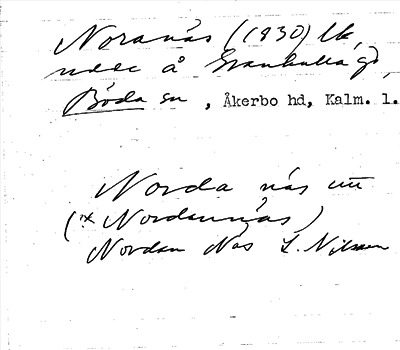 Noranäs (1830) lk,
udde å Grankulla gd,
Böda sn, Åkerbo hd, Kalm. l.
Norda näs
(* Nordannäs)
Nordan Näs L. Nilsson